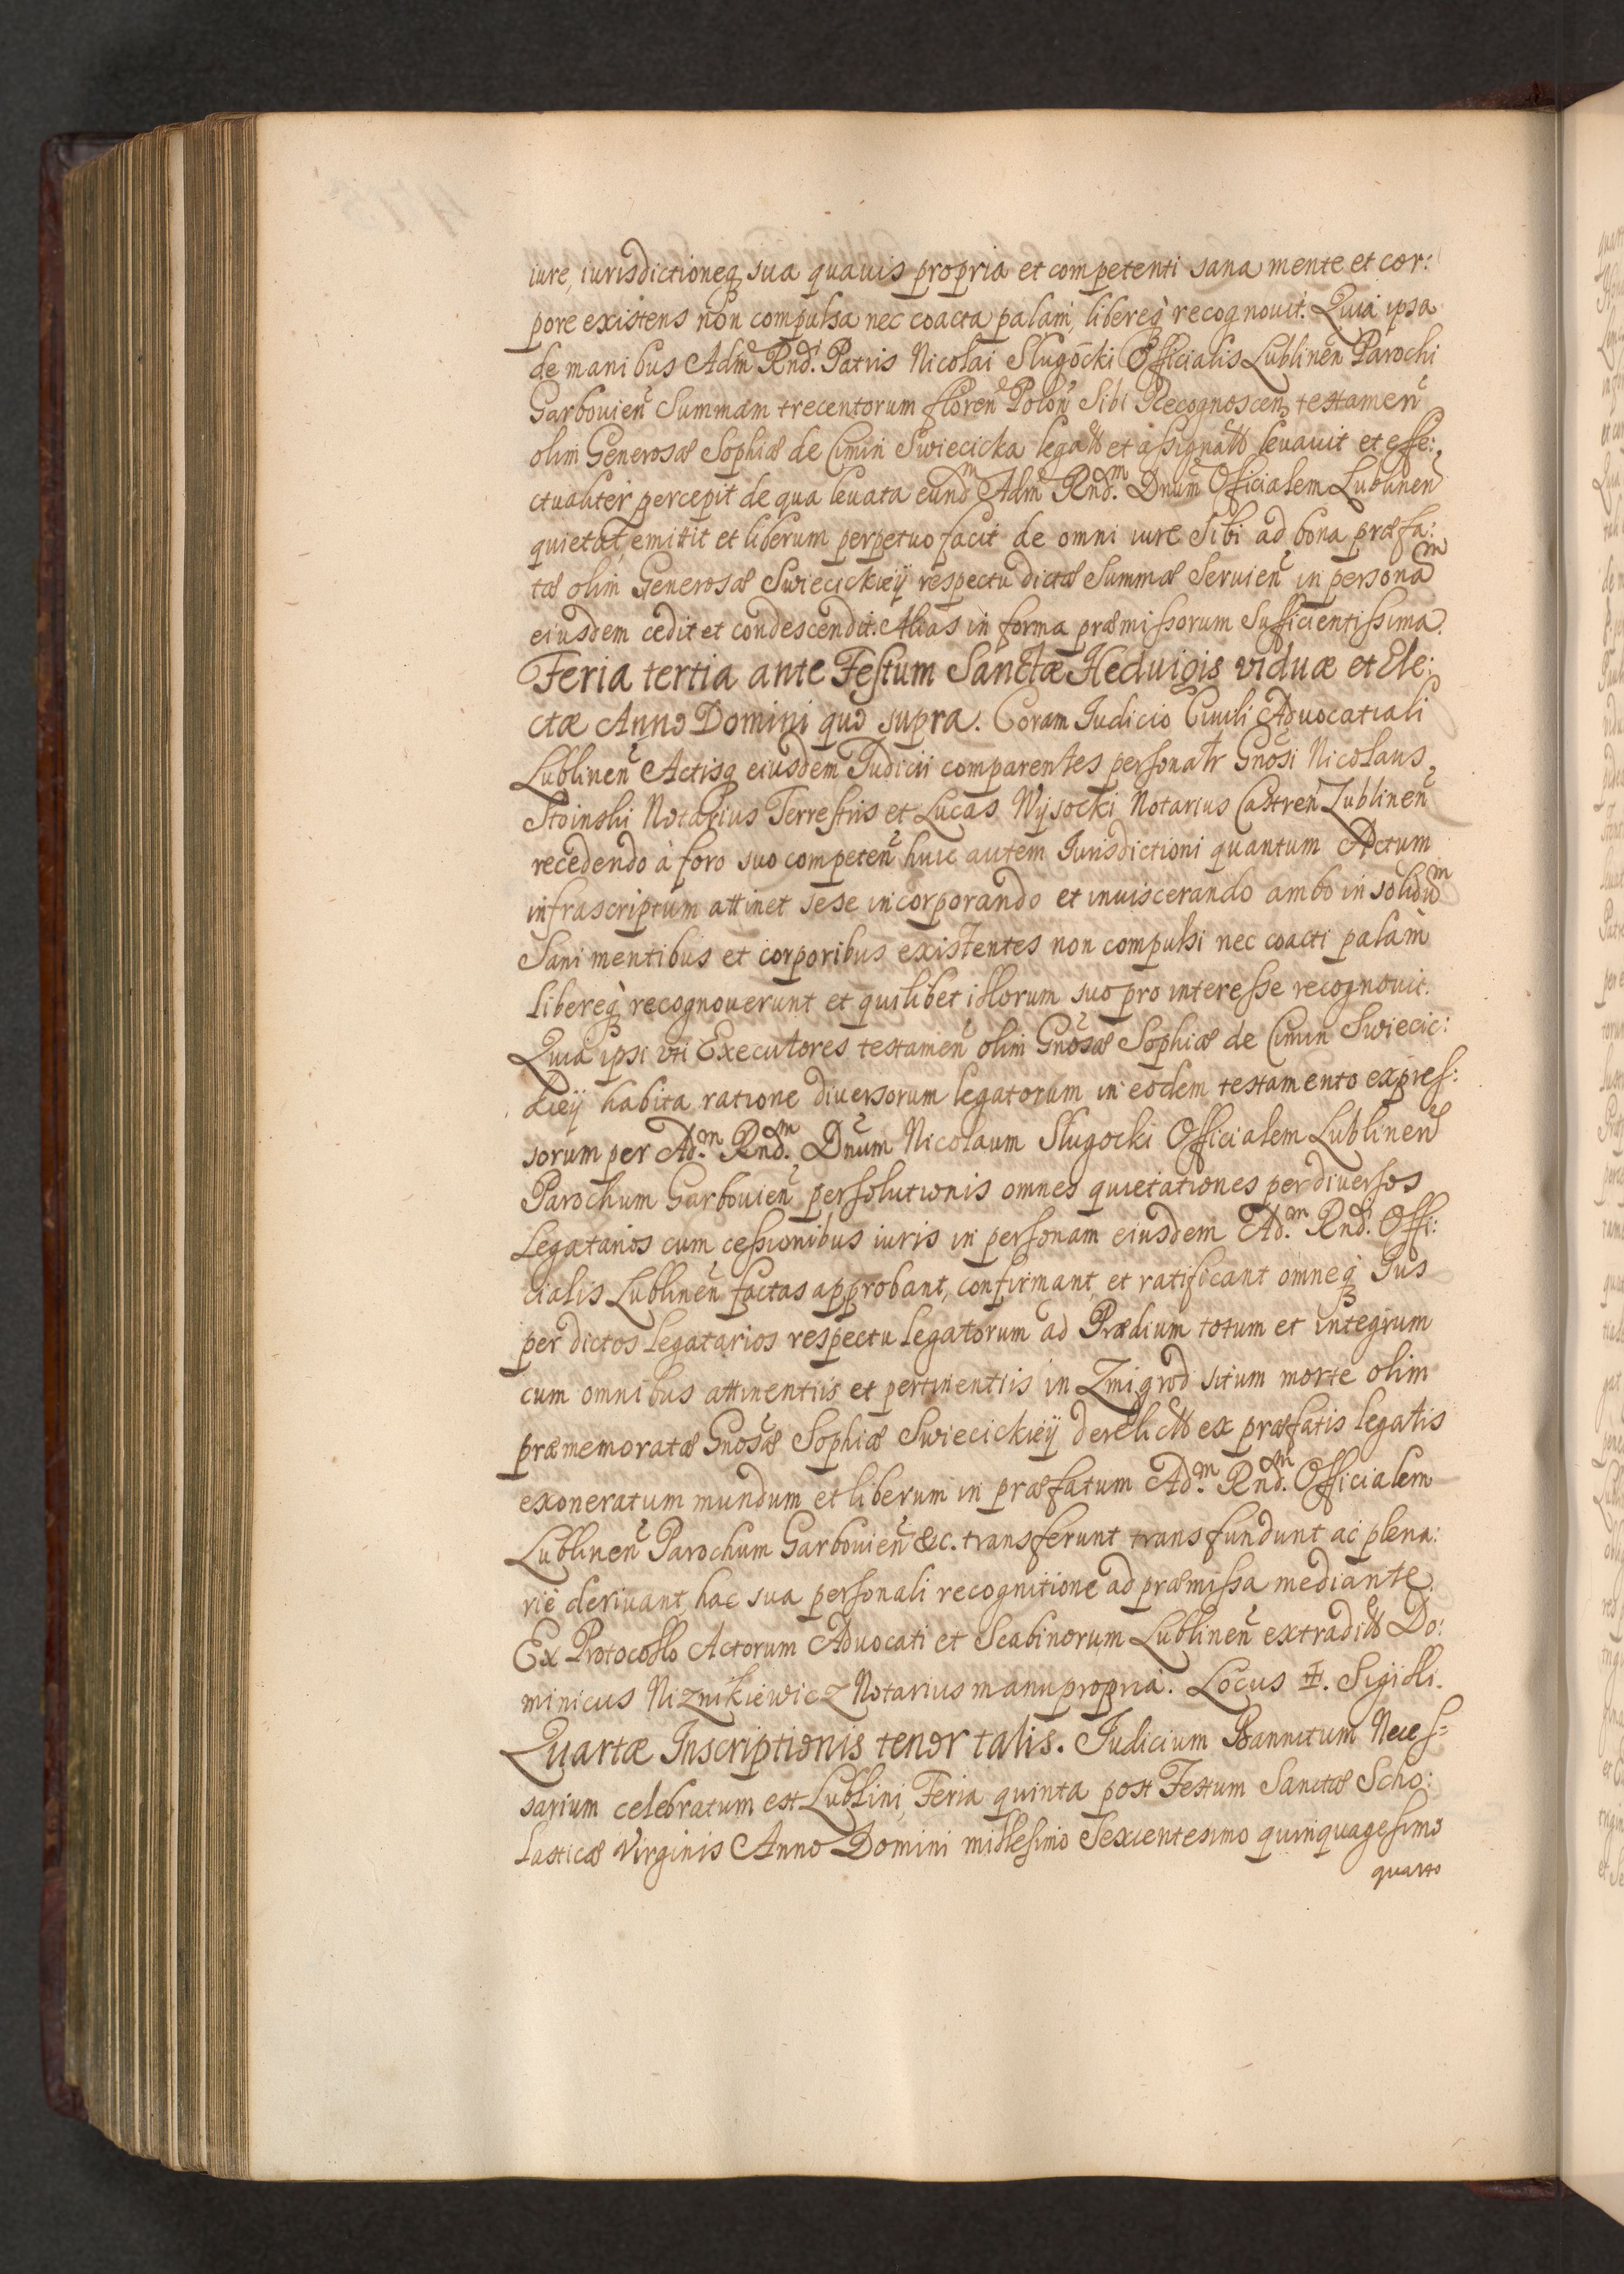 iure, iurisdictioneq₃ sua quauis propria et competenti sana mente et cor:
pore existens non compulsa nec coacta palam, libereq₃ recognouit. Quia ipsa
de manibus Adm Rnd.i Patris Nicolai Slugocki Officialis Lublinen Parochi
Garbouien Summam trecentorum floren Polon Sibi Recognoscen testamen
olim Generosæ Sophiæ de Cimin Swiecicka legatt et assignatt leuauit et effe:
ctualiter percepit de qua leuata eund.m Adm Rnd.m Dnum Officialem Lublinen
quietat, emittit et liberum perpetuo facit de omni iure Sibi ad bona præfa:
tæ olim Generosæ Swiecickieÿ respectu dictæ Summæ Seruien in persona.m
eiusdem cedit et condescendit. Alias in forma præmissorum Sufficientissima.
Feria tertia ante Festum Sanctæ Heduigis viduæ et Ele:
ctæ Anno Domini quo supra. Coram Iudicio Ciuili Aduocatiali
Lublinen Actisq₃ eiusdem Iudicii comparentes personatr Gnosi Nicolaus
Stoinski Notarius Terrestris et Lucas Wysocki Notarius Castren Lublinen
recedendo à foro suo competen huic autem Iurisdictioni quantum Actum
infrascriptum attinet sese incorporando et inuiscerando ambo in solidu.m
Sani mentibus et corporibus existentes non compulsi nec coacti palam
libereq₃ recognouerunt et quilibet illorum suo pro interesse recognouit.
Quia ipsi vti Executores testamen olim Gnosæ Sophiæ de Cimin Swiecic:
kieÿ habita ratione diuersorum legatorum in eodem testamento expres:
sorum per Ad.m Rnd.m Dnum Nicolaum Slugocki Officialem Lublinen
Parochum Garbouien persolutionis omnes quietationes per diuersos
Legatarios cum cessionibus iuris in personam eiusdem Ad.m Rnd.i Offi:
cialis Lublinen factas approbant, confirmant, et ratificant omneq₃ Ius
per dictos Legatarios respectu legatorum ad Prædium totum et integrum
cum omnibus attinentiis et pertinentiis in Zmigrod situm morte olim
præmemoratæ Gnosæ Sophiæ Swiecickieÿ derelictt ex præfatis legatis
exoneratum mundum et liberum in præfatum Ad.m Rnd.m Officialem
Lublinen Parochum Garbouien &c. transferunt transfundunt ac plena:
riè deriuant hac sua personali recognitione ad præmissa mediante.
Ex Protocollo Actorum Aduocati et Scabinorum Lublinen extraditt Do:
minicus Niznikiewicz Notarius manu propria. Locus ‡. Sigilli.
Quartæ Inscriptionis tenor talis. Iudicium Bannitum Neces=
sarium celebratum est Lublini, Feria quinta post Festum Sanctæ Scho:
lasticæ Virginis Anno Domini millesimo Sexcentesimo quinquagesimo
quarto